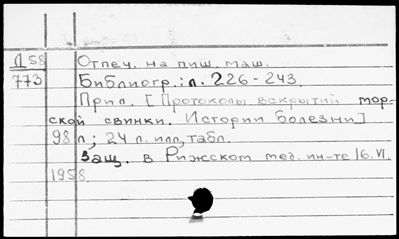 Д58 Отпеч. на пиш. маш.
773 Библиогр.: л. 226-243.
Прил. [Протоколы вскрытий мор-
ской свинки. Истории болезни]
98 л; 24 л. илл, табл.
Защ. в Рижском мед. ин-те 16.VI.
1958.